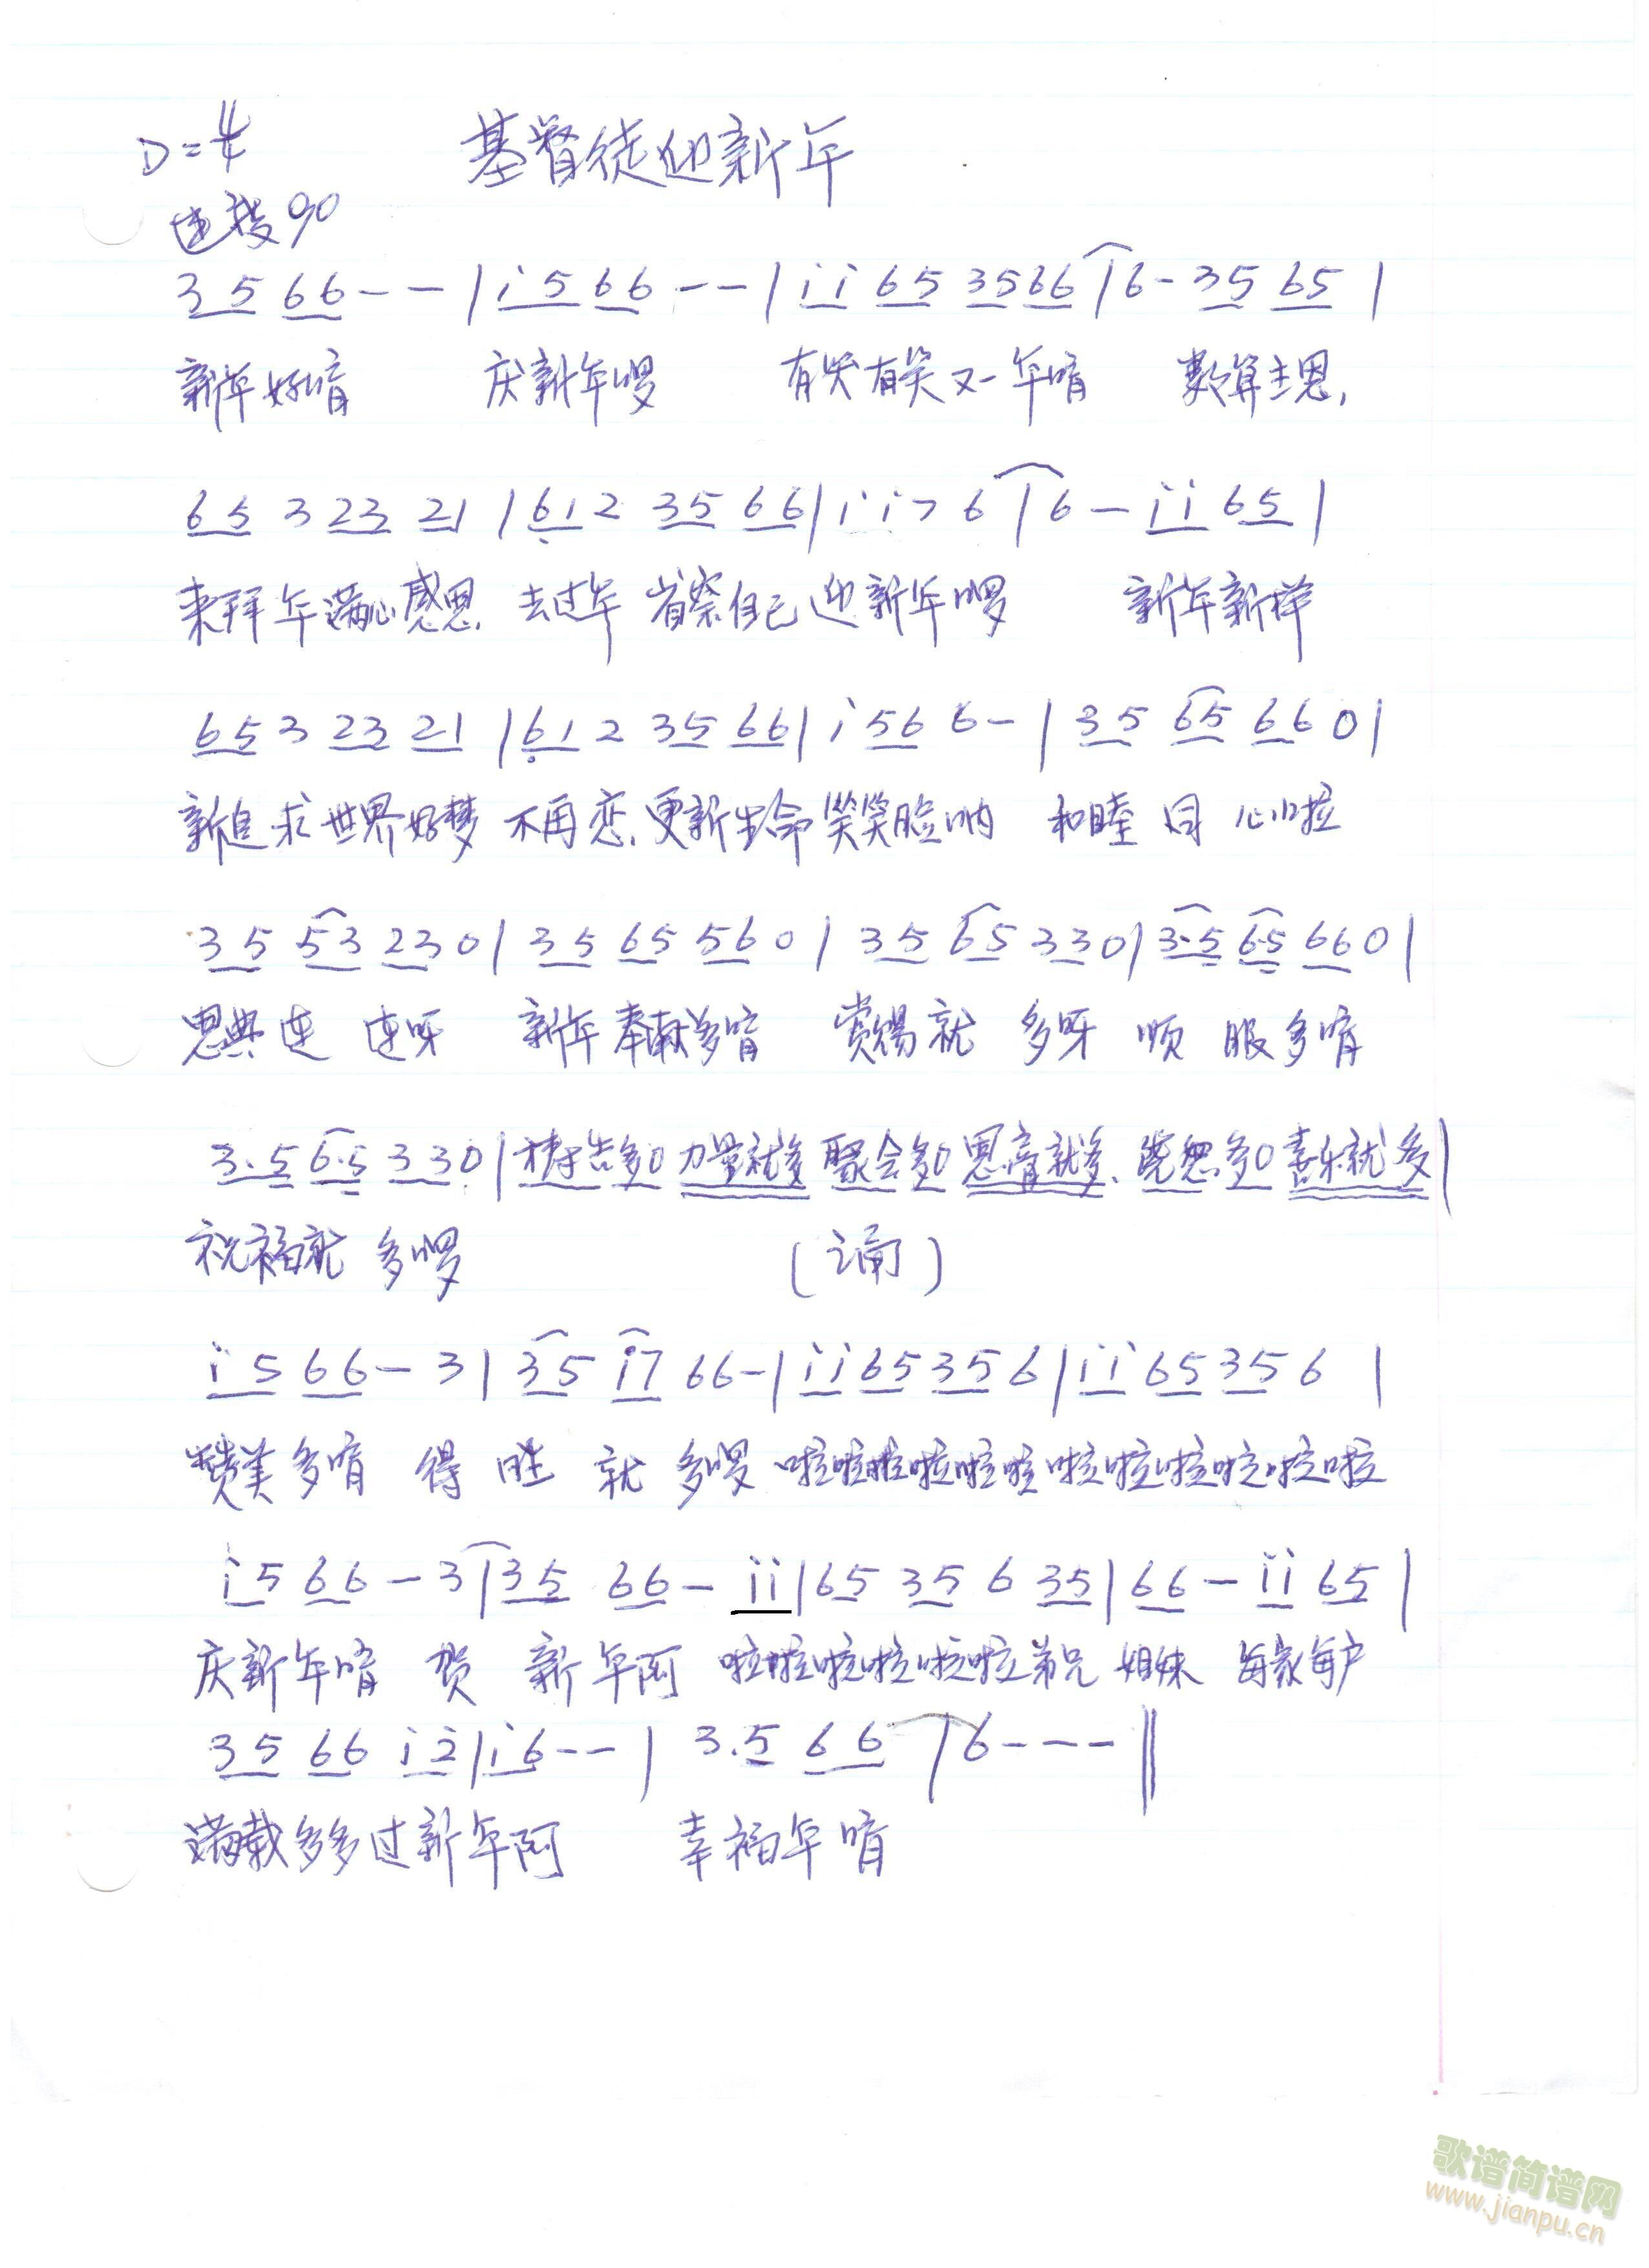 D=4/4 基督徒迎新年
速度90
3 5 6 6 - - | i 5 6 6 - - | i i 6 5 3 5 6 6 | 6 - 3 5 6 5 |
新年好唷 庆新年啰 有哭有笑又一年唷 数算主恩,
6 5 3 2 3 2 1 | 6 1 2 3 5 6 6 | i i 7 6 | 6 - i i 6 5 |
来拜年满心感恩. 去过年 省察自己迎新年啰 新年新样
6 5 3 2 3 2 1 | 6 1 2 3 5 6 6 | i 5 6 6 - | 3 5 6 5 6 6 0 |
新追求世界好梦 不再恋.更新生命笑笑脸呐 和睦同心啦
3 5 5 3 2 3 0 | 3 5 6 5 5 6 0 | 3 5 6 5 3 3 0 | 3 . 5 6 . 5 6 6 0 |
恩典连连呀 新年奉献多唷 赏赐就多呀 顺服多唷
3 . 5 6 . 5 3 3 0 | 祷告多0 力量就多 聚会多0 恩膏就多. 饶恕多0 喜乐就多 |
祝福就多啰 (诵)
i 5 6 6 - 3 | 3 5 i 7 6 6 - | i i 6 5 3 5 6 | i i 6 5 3 5 6 |
赞美多唷 得胜就多啰 啦啦啦啦啦啦啦啦啦啦啦啦
i 5 6 6 - 3 | 3 5 6 6 - i i | 6 5 3 5 6 3 5 | 6 6 - i i 6 5 |
庆新年唷 贺新年阿 啦啦啦啦啦啦弟兄姐妹 每家每户
3 5 6 6 i 2 | i 6 - - | 3 . 5 6 6 | 6 - - - ‖
满载多多过新年阿 幸福年唷
歌谱简谱网
www.jianpu.cn